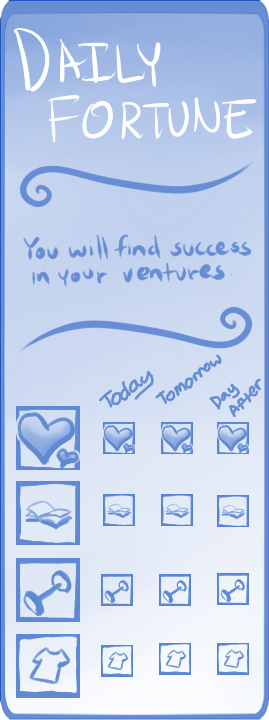 DAILY
FORTUNE
You will find success
in your ventures.
Today
Tomorrow
Day
After